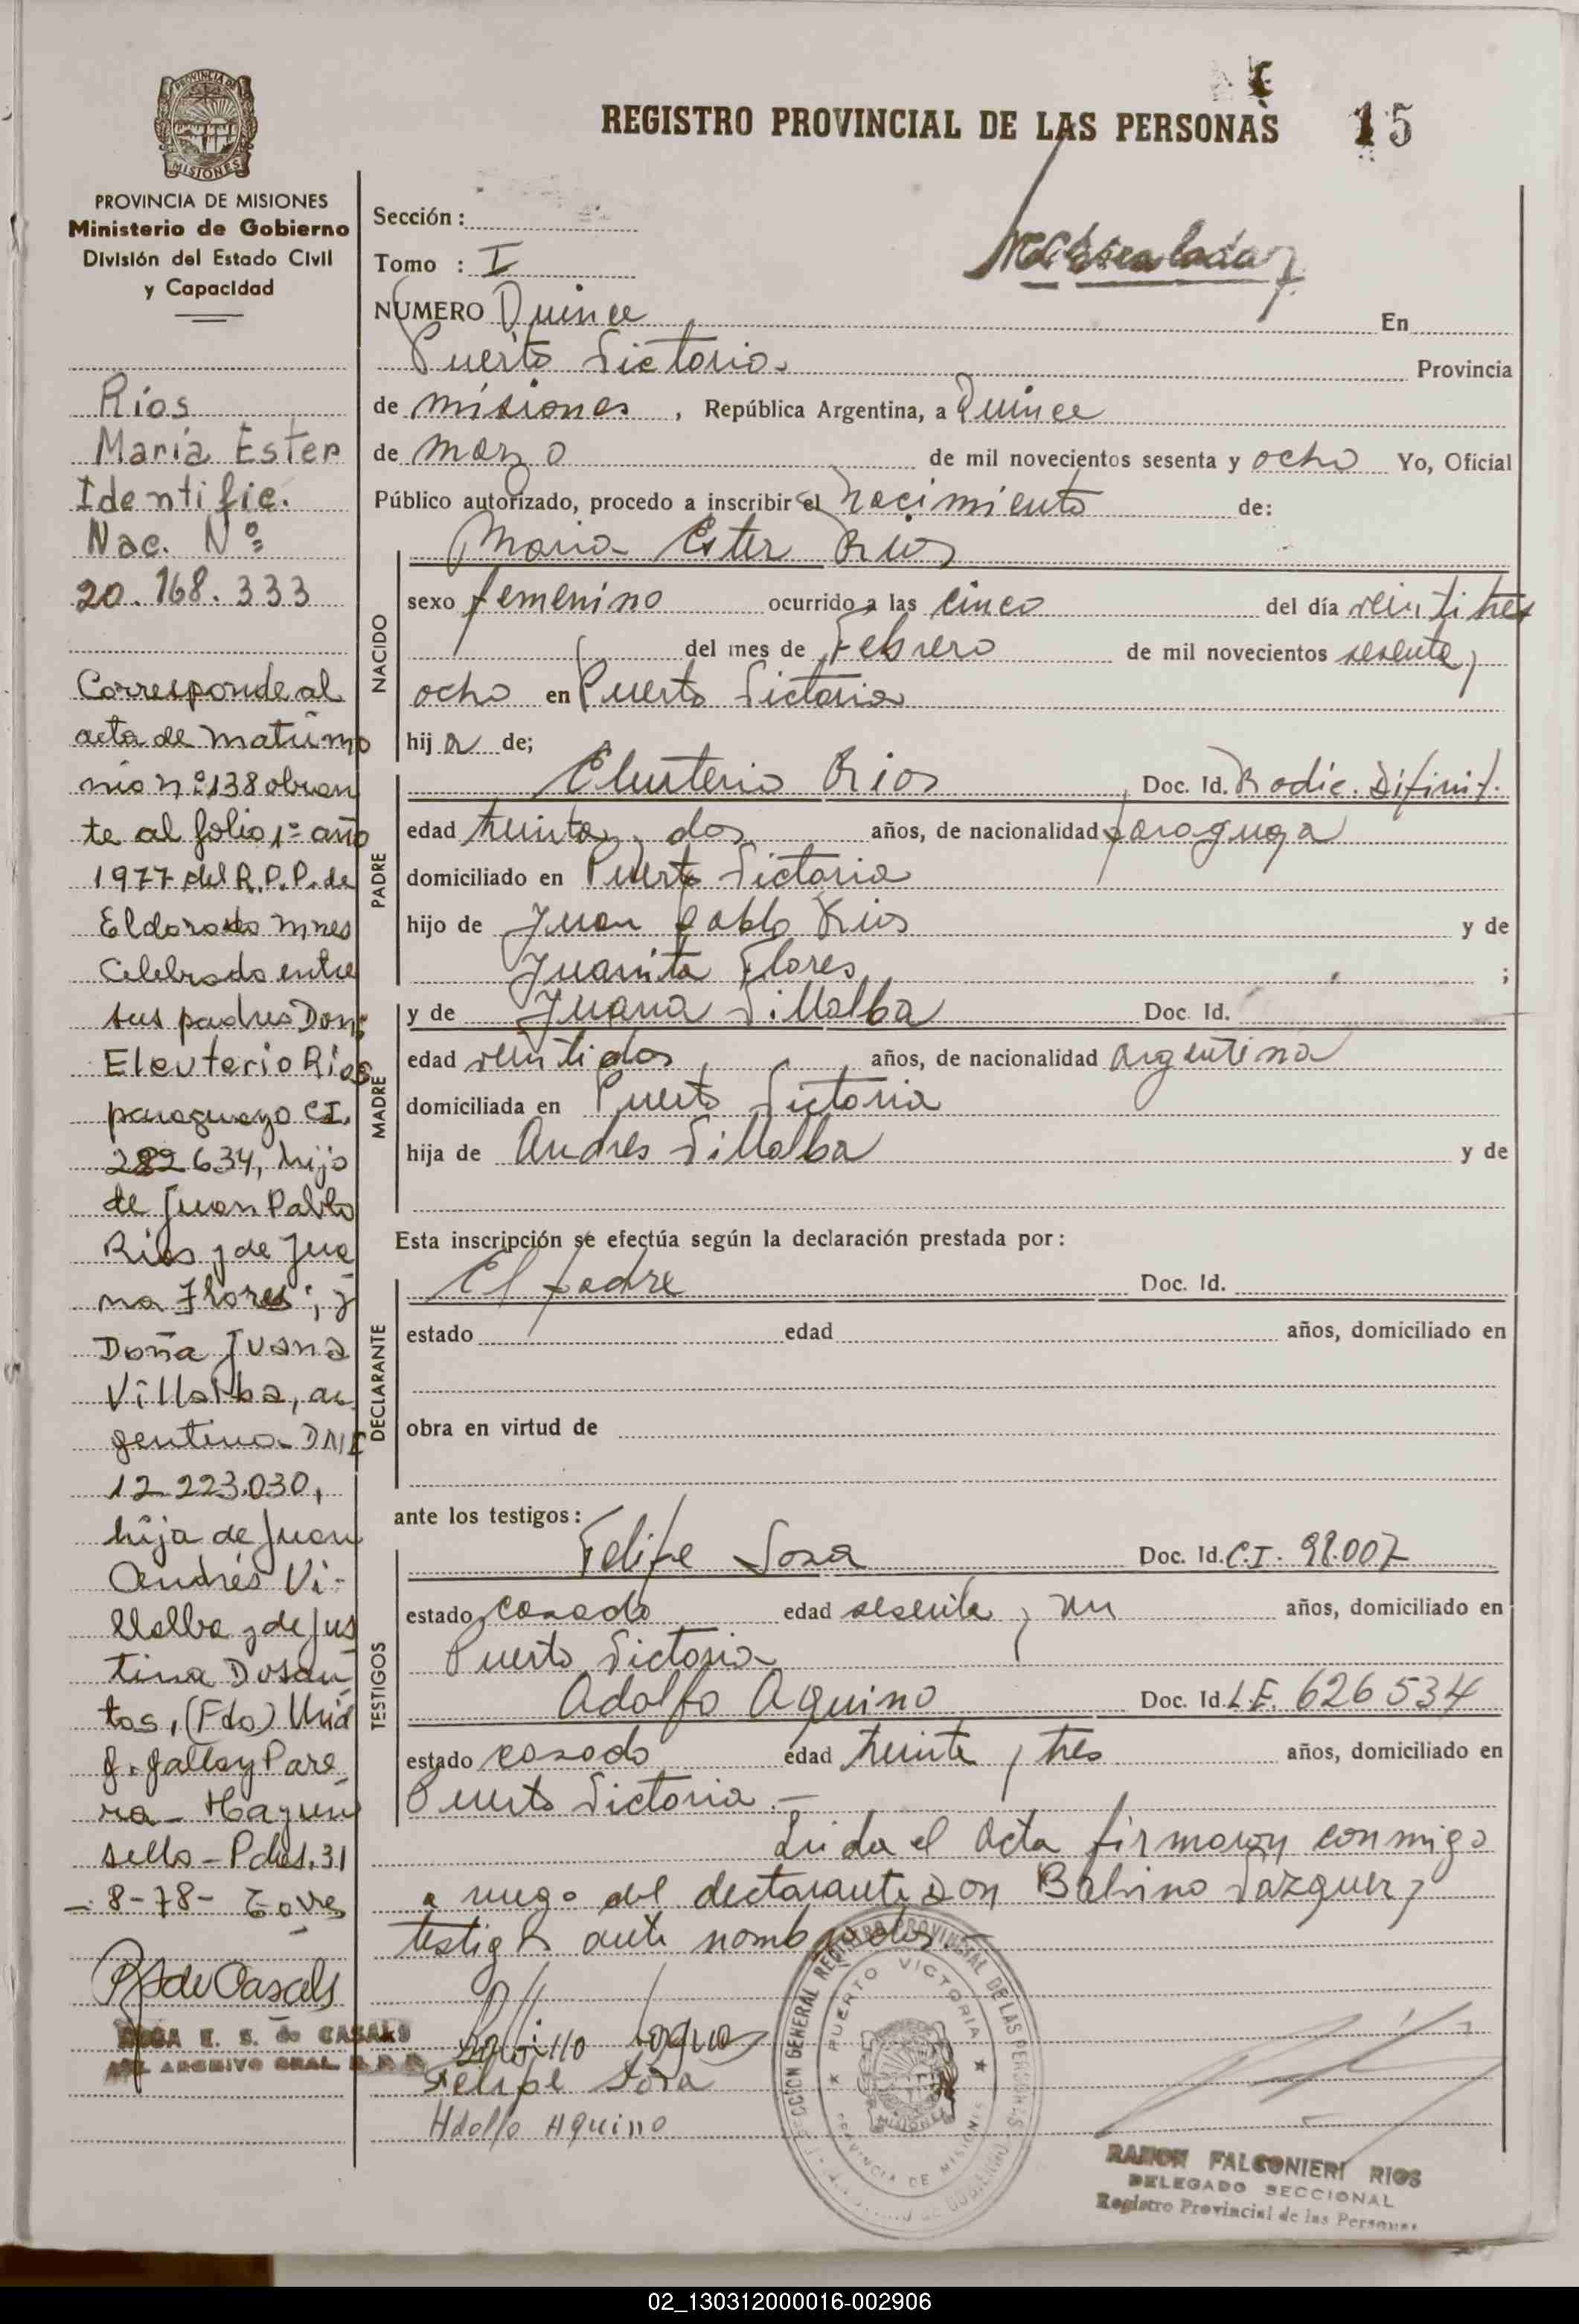 REGISTRO PROVINCIAL DE LAS PERSONAS 15
PROVINCIA DE MISIONES
MISIONES
PROVINCIA DE MISIONES
Ministerio de Gobierno
División del Estado Civil
y Capacidad
Rios
María Ester
Identific.
Nac. Nº
20.168.333
Corresponde al
acta de matrimo
nio nº 138 obran
te al folio 1º año
1977 del R.P.P. de
Eldorado Mnes
Celebrado entre
sus padres Don:
Eleuterio Rios
paraguayo CI.
282634, hijo
de Juan Pablo
Rios y de Jua
na Flores; y
Doña Juana
Villalba, ar
gentina DNI
12.223.030,
hija de Juan
Andrés Vi-
llalba y de Jus
tina Dosan
tos, (Fdo)
sello - Pdas. 31
-8-78-
RS de Casals
E. S. de CASALS
ARCHIVO GRAL R.P.P.
Sección:
Tomo : I
NUMERO Quince En
Puerto Victoria Provincia
de Misiones, República Argentina, a Quince
de Marzo de mil novecientos sesenta y ocho Yo, Oficial
Público autorizado, procedo a inscribir el Nacimiento de:
Maria Ester Rios
NACIDO
sexo femenino ocurrido a las cinco del día veintitres
del mes de Febrero de mil novecientos sesenta y
ocho en Puerto Victoria
hija de;
PADRE
Eluterio Rios Doc. Id. Radic. Difinit.
edad treinta y dos años, de nacionalidad paraguaya
domiciliado en Puerto Victoria
hijo de Juan Pablo Rios y de
Juanita Flores ;
MADRE
y de Juana Villalba Doc. Id.
edad veintidos años, de nacionalidad argentina
domiciliada en Puerto Victoria
hija de Andres Villalba y de
Esta inscripción se efectúa según la declaración prestada por:
DECLARANTE
El padre Doc. Id.
estado edad años, domiciliado en
obra en virtud de
ante los testigos:
TESTIGOS
Felipe Sosa Doc. Id. C.I. 98.007
estado casado edad sesenta y un años, domiciliado en
Puerto Victoria
Adolfo Aquino Doc. Id. L.E. 626534
estado casado edad treinta y tres años, domiciliado en
Puerto Victoria.-
Leida el acta firmaron conmigo
a ruego del declarante Don Balvino Vazquez y
testigos ante nombrados.-
Felipe Sosa
Adolfo Aquino
DIRECCION GENERAL REGISTRO PROVINCIAL DE LAS PERSONAS
PUERTO VICTORIA
PROVINCIA DE MISIONES
RAMON FALCONIERI RIOS
DELEGADO SECCIONAL
Registro Provincial de las Personas
02_130312000016-002906